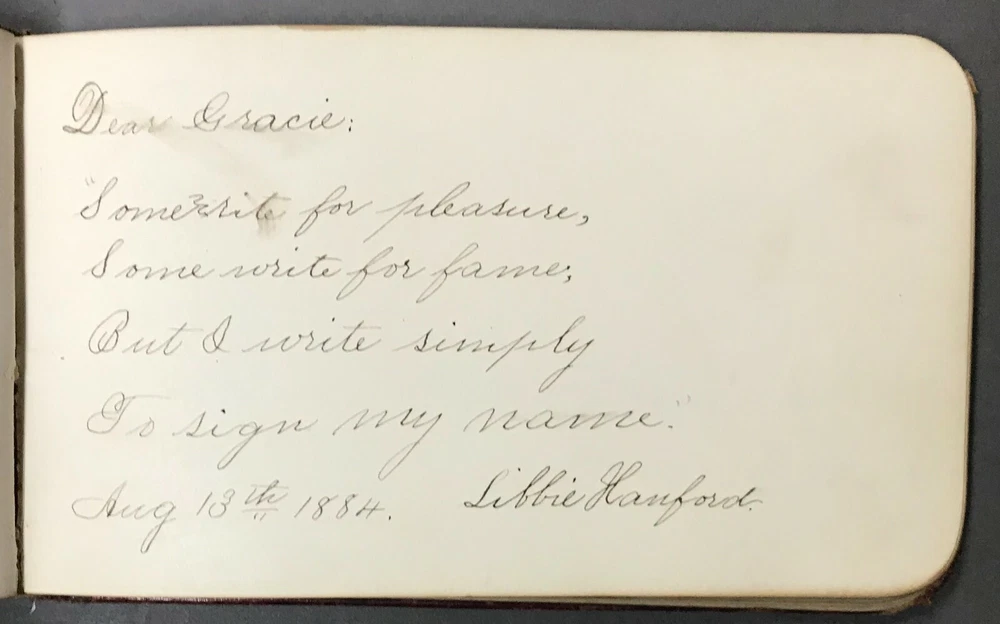 Dear Gracie:
"Some write for pleasure,
Some write for fame;
But I write simply
To sign my name."
Aug 13th 1884. Libbie Hanford.